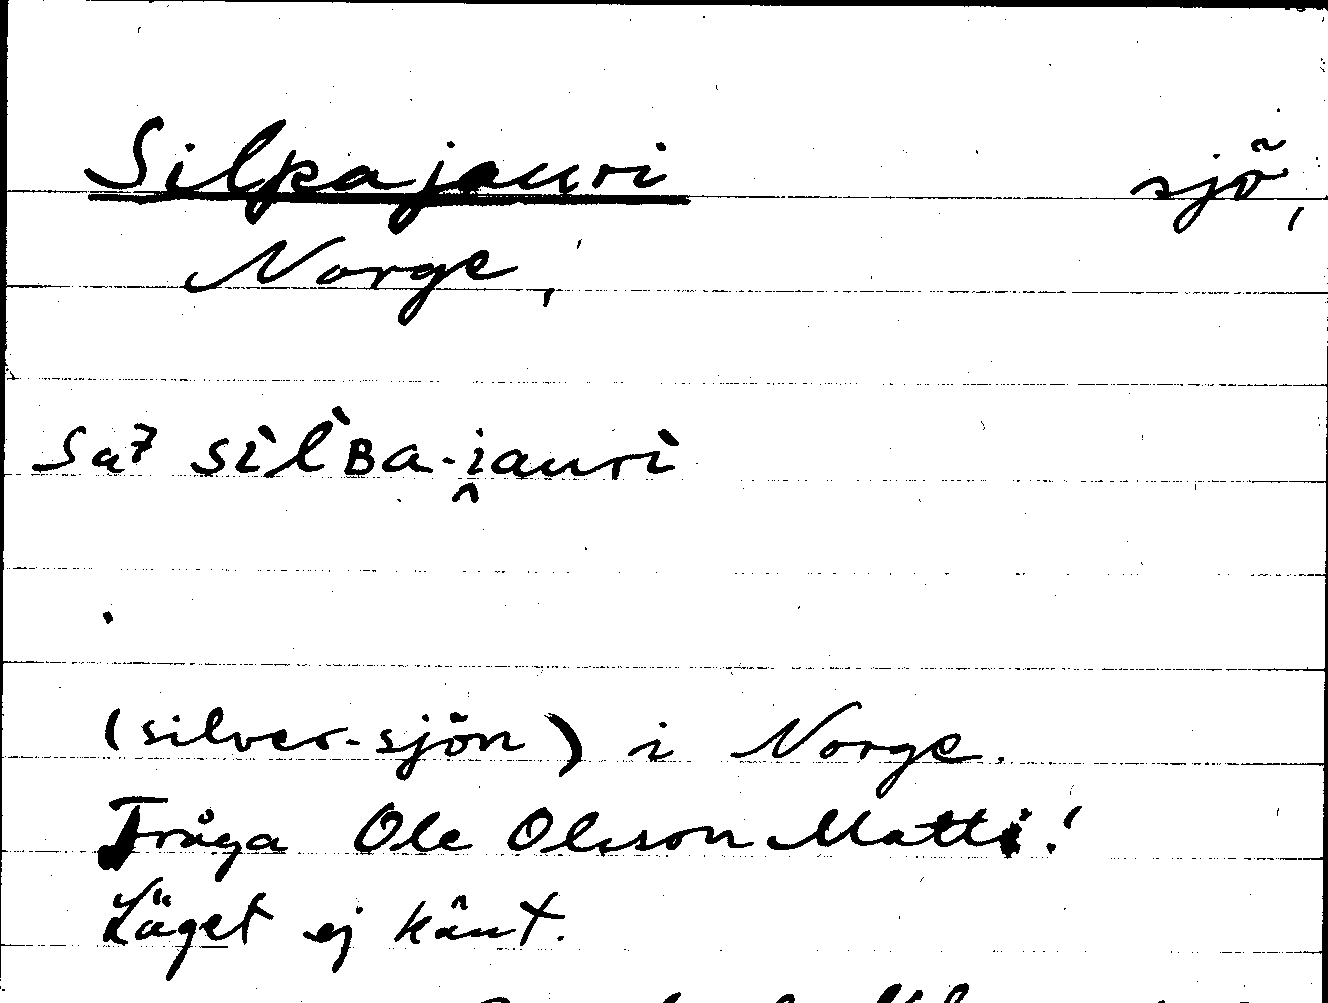 Silpajauri sjö,
Norge,
Sa7 sìl̀Ba-i̭aurì
(silver-sjön) i Norge.
Fråga Ole Olsson Matti!
Läget ej känt.